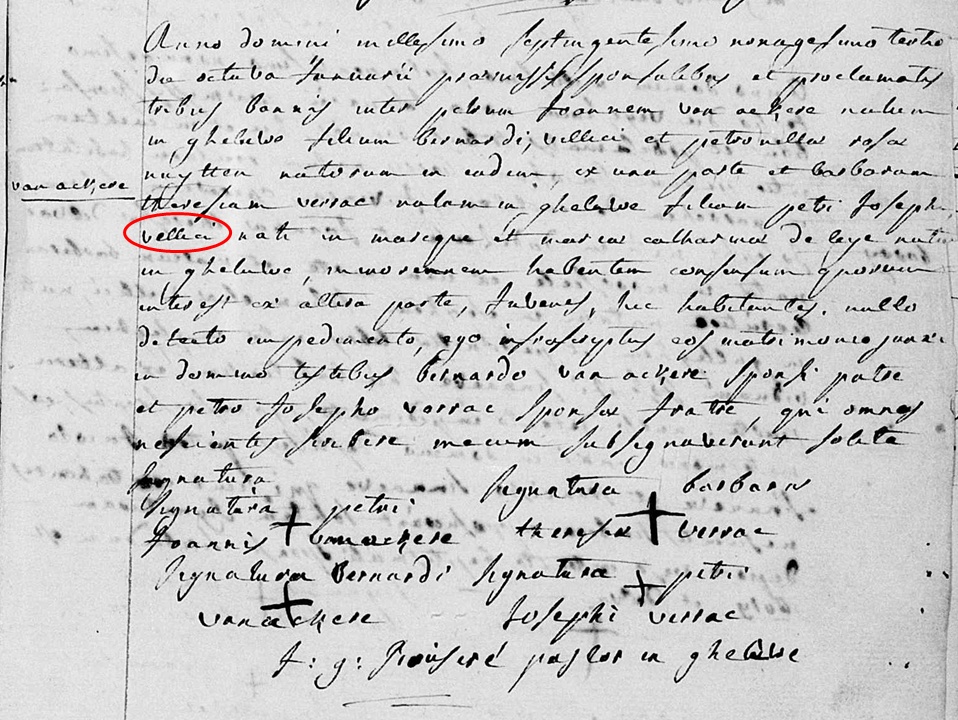 Anno domini millesimo septingentesimo nonagesimo tertio
die octava Januarii praemissis sponsalibus et proclamatis
tribus bannis inter petrum Joannem van ackere natum
in gheluwe filium bernardi, vellici et petronella rosa
nuytten natorum in eadem, ex una parte et barbaram
van ackere
theresiam verrac natam in gheluwe filiam petri Josephi
vellici nati in et maria catharina de leye nata
in gheluwe, minorennem habentem consensum quorum
interest ex altera parte, Juvenes, hic habitantes, nullo
detecto impedimento, ego infrascriptus eos matrimonio junxi
in domino testibus bernardo van ackere sponsi patre
et petro Josepho verrac sponsa fratre, qui omnes
nescientes scribere mecum subsignaverunt solita
signatura
Signatura + petri
Joannis vanackere
Signatura barbara
theresia + verrac
Signatura Bernardi
+ vanackere
Signatura + petri
Josephi verrac
J: g: pastor in gheluwe